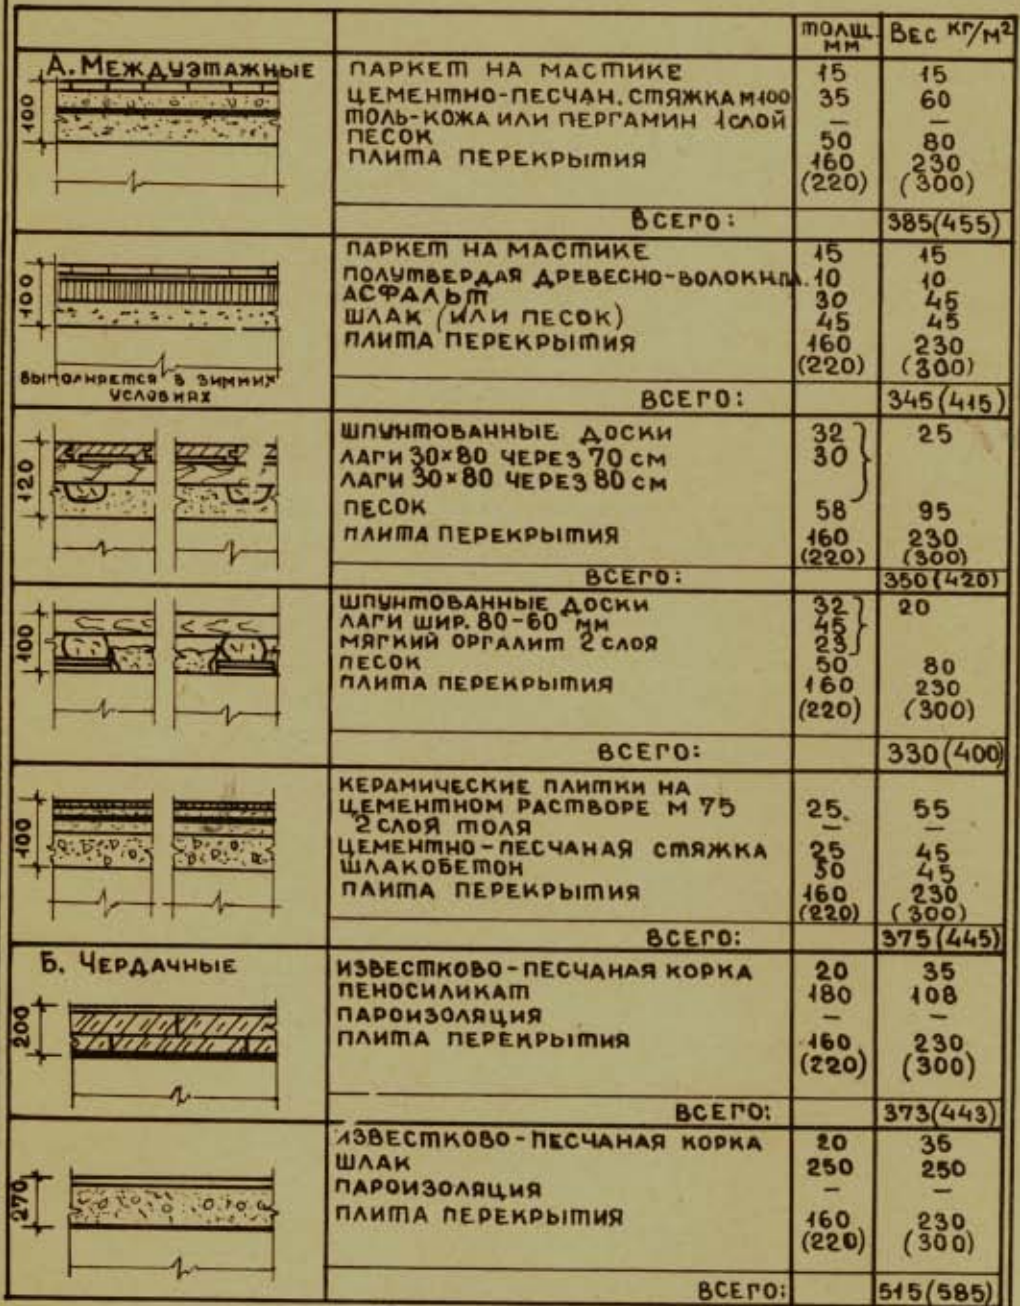 ТОЛЩ. ММ ВЕС КГ/М²
А. МЕЖДУЭТАЖНЫЕ
100
ПАРКЕТ НА МАСТИКЕ 15 15
ЦЕМЕНТНО-ПЕСЧАН. СТЯЖКА М100 35 60
ТОЛЬ-КОЖА ИЛИ ПЕРГАМИН 1 СЛОЙ — —
ПЕСОК 50 80
ПЛИТА ПЕРЕКРЫТИЯ 160 230
(220) (300)
ВСЕГО: 385(455)
100
ВЫПОЛНЯЕТСЯ В ЗИМНИХ
УСЛОВИЯХ
ПАРКЕТ НА МАСТИКЕ 15 15
ПОЛУТВЕРДАЯ ДРЕВЕСНО-ВОЛОКН.ПЛ. 10 10
АСФАЛЬТ 30 45
ШЛАК (ИЛИ ПЕСОК) 45 45
ПЛИТА ПЕРЕКРЫТИЯ 160 230
(220) (300)
ВСЕГО: 345(415)
120
ШПУНТОВАННЫЕ ДОСКИ 32 25
ЛАГИ 30×80 ЧЕРЕЗ 70 СМ 30
ЛАГИ 30×80 ЧЕРЕЗ 80 СМ
ПЕСОК 58 95
ПЛИТА ПЕРЕКРЫТИЯ 160 230
(220) (300)
ВСЕГО: 350(420)
100
ШПУНТОВАННЫЕ ДОСКИ 32 20
ЛАГИ ШИР. 80-60 ММ 45
МЯГКИЙ ОРГАЛИТ 2 СЛОЯ 23
ПЕСОК 50 80
ПЛИТА ПЕРЕКРЫТИЯ 160 230
(220) (300)
ВСЕГО: 330(400)
100
КЕРАМИЧЕСКИЕ ПЛИТКИ НА
ЦЕМЕНТНОМ РАСТВОРЕ М 75 25 55
2 СЛОЯ ТОЛЯ — —
ЦЕМЕНТНО-ПЕСЧАНАЯ СТЯЖКА 25 45
ШЛАКОБЕТОН 50 45
ПЛИТА ПЕРЕКРЫТИЯ 160 230
(220) (300)
ВСЕГО: 375(445)
Б. ЧЕРДАЧНЫЕ
200
ИЗВЕСТКОВО-ПЕСЧАНАЯ КОРКА 20 35
ПЕНОСИЛИКАТ 180 108
ПАРОИЗОЛЯЦИЯ — —
ПЛИТА ПЕРЕКРЫТИЯ 160 230
(220) (300)
ВСЕГО: 373(443)
270
ИЗВЕСТКОВО-ПЕСЧАНАЯ КОРКА 20 35
ШЛАК 250 250
ПАРОИЗОЛЯЦИЯ — —
ПЛИТА ПЕРЕКРЫТИЯ 160 230
(220) (300)
ВСЕГО: 515(585)